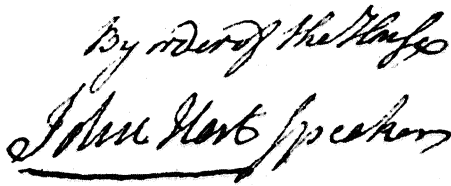 By order of the House
John Hart Speaker